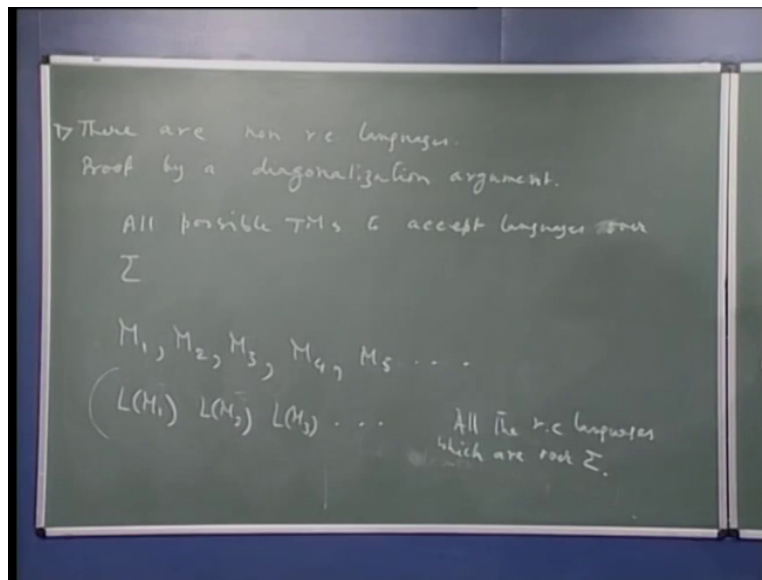 There are non r.e languages.
Proof by a diagonalization argument.
All possible TMs to accept languages over
Σ
M₁, M₂, M₃, M₄, M₅ ....
(L(M₁) L(M₂) L(M₃) ...
All the r.e languages
which are over Σ.